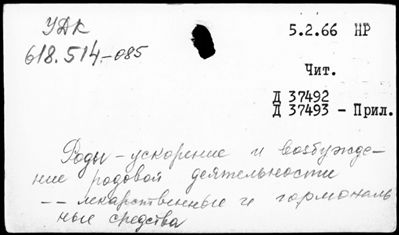 УДК
618.514-085
5.2.66 НР
Чит.
Д 37492
Д 37493 - Прил.
Роды - ускорение и возбужде-
ние родовой деятельности
-- лекарственные и гормональ
ные средства